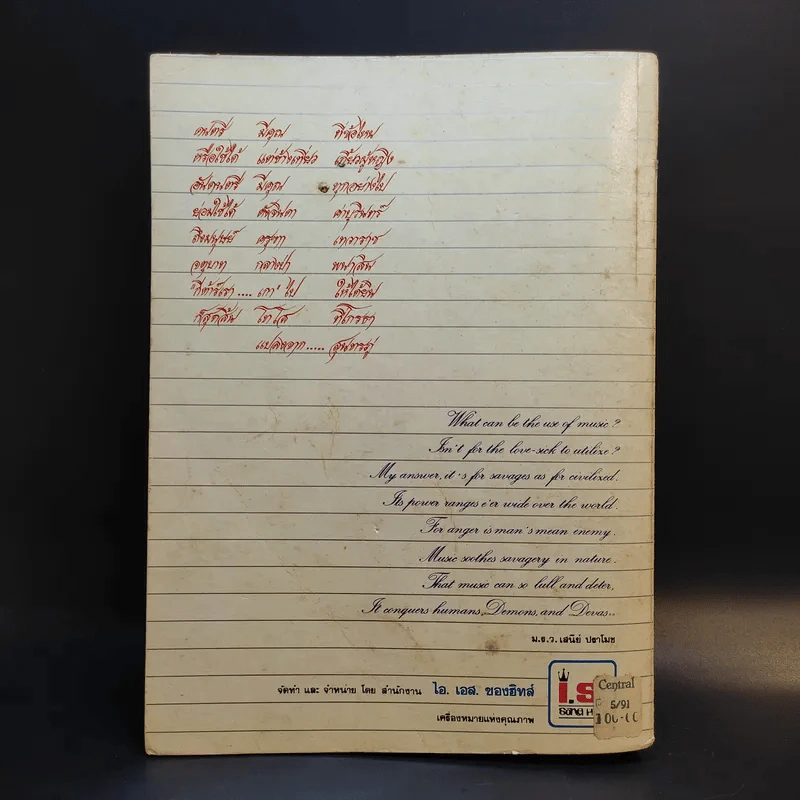 ดนตรี มีคุณ ที่ข้อไหน
หรือใช้ได้ แต่ข้างเที่ยว เกี้ยวผู้หญิง
อันดนตรี มีคุณ ทุกอย่างไป
ย่อมใช้ได้ ดังจินดา ค่าบุรินทร์
ถึงมนุษย์ ครุฑา เทวราช
จตุบาท กลางป่า พนาสิน
กีต้าร์เรา.... เกา' ไป ให้ได้ยิน
ก็สุดสิ้น โทโส ที่โกรธา
แปลงจาก..... สุนทรภู่
What can be the use of music?
Isn't for the love-sick to utilize?
My answer, it's for savages as for civilized.
Its power ranges e'er wide over the world.
For anger is man's mean enemy.
Music soothes savagery in nature.
That music can so lull and deter,
It conquers humans, Demons, and Devas..
ม.ร.ว.เสนีย์ ปราโมช
จัดทำ และ จำหน่าย โดย สำนักงาน ไอ. เอส. ซองฮิทส์
เครื่องหมายแห่งคุณภาพ
i.s
SONG H
Central
5/91